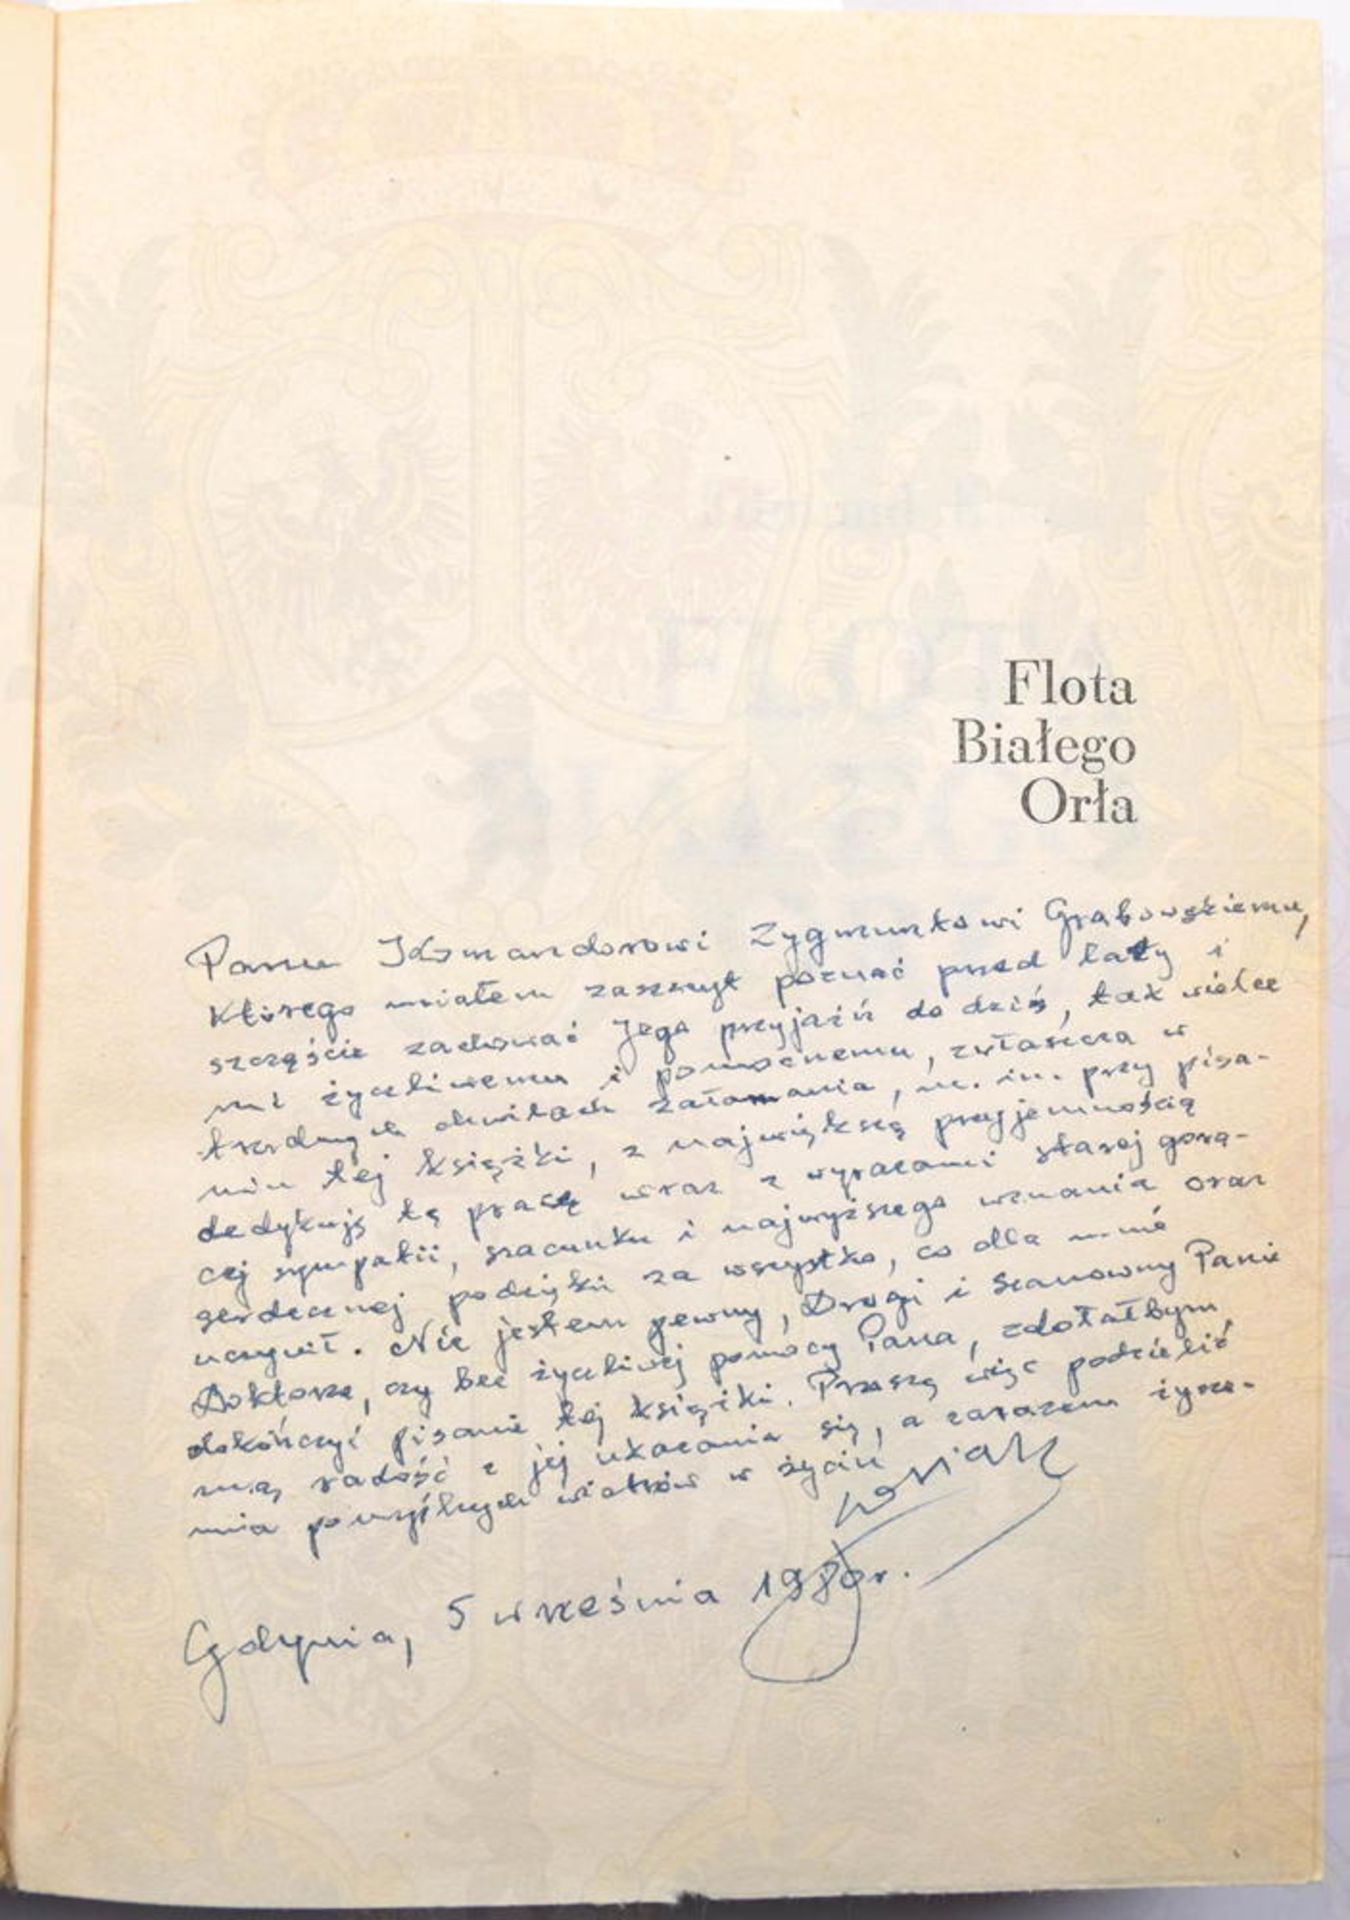 Flota
Białego
Orła
Panu Komandorowi Zygmuntowi Grabowskiemu,
którego miałem zaszczyt poznać przed laty i
szczęście zachować Jego przyjaźń do dziś, tak wielce
mi życzliwemu i pomocnemu, zwłaszcza w
trudnych chwilach załamania, m. in. przy pisa-
niu tej książki, z największą przyjemnością
dedykuję tę pracę wraz z wyrazami starej gorą-
cej sympatii, szacunku i najwyższego uznania oraz
serdecznej podzięki za wszystko, co dla mnie
uczynił. Nie jestem pewny, Drogi i Szanowny Panie
Doktorze, czy bez życzliwej pomocy Pana, zdołałbym
dokończyć pisanie tej książki. Proszę więc podzielić
mą radość z jej ukazania się, a zarazem życze-
nia pomyślnych wiatrów w życiu
Gdynia, 5 września 1980r.